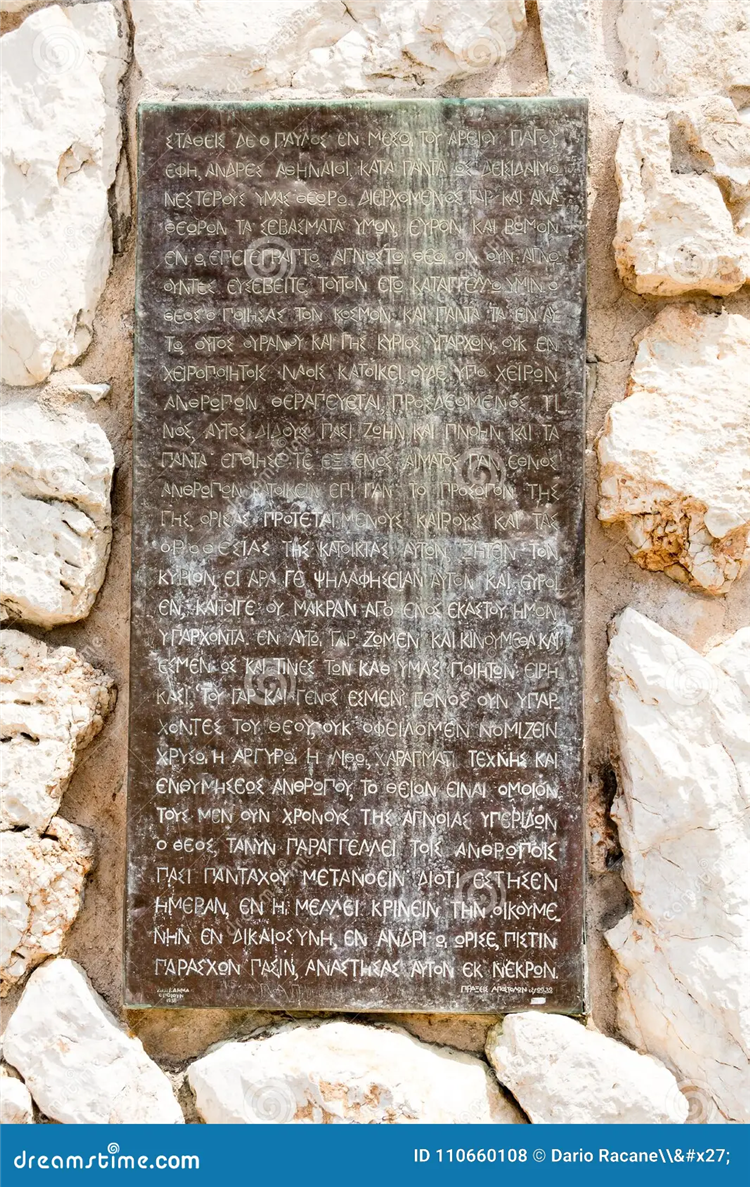 ΣΤΑΘΕΙΣ ΔΕ Ο ΠΑΥΛΟΣ ΕΝ ΜΕΣΩ ΤΟΥ ΑΡΕΙΟΥ ΠΑΓΟΥ
ΕΦΗ, ΑΝΔΡΕΣ ΑΘΗΝΑΙΟΙ, ΚΑΤΑ ΠΑΝΤΑ ΩΣ ΔΕΙΣΙΔΑΙΜΟ
ΝΕΣΤΕΡΟΥΣ ΥΜΑΣ ΘΕΩΡΩ. ΔΙΕΡΧΟΜΕΝΟΣ ΓΑΡ ΚΑΙ ΑΝΑ
ΘΕΩΡΩΝ ΤΑ ΣΕΒΑΣΜΑΤΑ ΥΜΩΝ, ΕΥΡΟΝ ΚΑΙ ΒΩΜΟΝ
ΕΝ Ω ΕΠΕΓΕΓΡΑΠΤΟ, ΑΓΝΩΣΤΩ ΘΕΩ. ΟΝ ΟΥΝ ΑΓΝΟ
ΟΥΝΤΕΣ ΕΥΣΕΒΕΙΤΕ ΤΟΥΤΟΝ ΕΓΩ ΚΑΤΑΓΓΕΛΛΩ ΥΜΙΝ. Ο
ΘΕΟΣ Ο ΠΟΙΗΣΑΣ ΤΟΝ ΚΟΣΜΟΝ ΚΑΙ ΠΑΝΤΑ ΤΑ ΕΝ ΑΥ
ΤΩ, ΟΥΤΟΣ ΟΥΡΑΝΟΥ ΚΑΙ ΓΗΣ ΚΥΡΙΟΣ ΥΠΑΡΧΩΝ, ΟΥΚ ΕΝ
ΧΕΙΡΟΠΟΙΗΤΟΙΣ ΝΑΟΙΣ ΚΑΤΟΙΚΕΙ, ΟΥΔΕ ΥΠΟ ΧΕΙΡΩΝ
ΑΝΘΡΩΠΩΝ ΘΕΡΑΠΕΥΕΤΑΙ, ΠΡΟΣΔΕΟΜΕΝΟΣ ΤΙ
ΝΟΣ, ΑΥΤΟΣ ΔΙΔΟΥΣ ΠΑΣΙ ΖΩΗΝ ΚΑΙ ΠΝΟΗΝ ΚΑΙ ΤΑ
ΠΑΝΤΑ ΕΠΟΙΗΣΕ ΤΕ ΕΞ ΕΝΟΣ ΑΙΜΑΤΟΣ ΠΑΝ ΕΘΝΟΣ
ΑΝΘΡΩΠΩΝ ΚΑΤΟΙΚΕΙΝ ΕΠΙ ΠΑΝ ΤΟ ΠΡΟΣΩΠΟΝ ΤΗΣ
ΓΗΣ, ΟΡΙΣΑΣ ΠΡΟΤΕΤΑΓΜΕΝΟΥΣ ΚΑΙΡΟΥΣ ΚΑΙ ΤΑΣ
ΟΡΟΘΕΣΙΑΣ ΤΗΣ ΚΑΤΟΙΚΙΑΣ ΑΥΤΩΝ ΖΗΤΕΙΝ ΤΟΝ
ΚΥΡΙΟΝ, ΕΙ ΑΡΑ ΓΕ ΨΗΛΑΦΗΣΕΙΑΝ ΑΥΤΟΝ ΚΑΙ ΕΥΡΟΙ
ΕΝ, ΚΑΙΤΟΙΓΕ ΟΥ ΜΑΚΡΑΝ ΑΠΟ ΕΝΟΣ ΕΚΑΣΤΟΥ ΗΜΩΝ
ΥΠΑΡΧΟΝΤΑ. ΕΝ ΑΥΤΩ ΓΑΡ ΖΩΜΕΝ ΚΑΙ ΚΙΝΟΥΜΕΘΑ ΚΑΙ
ΕΣΜΕΝ, ΩΣ ΚΑΙ ΤΙΝΕΣ ΤΩΝ ΚΑΘ ΥΜΑΣ ΠΟΙΗΤΩΝ ΕΙΡΗ
ΚΑΣΙ, ΤΟΥ ΓΑΡ ΚΑΙ ΓΕΝΟΣ ΕΣΜΕΝ. ΓΕΝΟΣ ΟΥΝ ΥΠΑΡ
ΧΟΝΤΕΣ ΤΟΥ ΘΕΟΥ, ΟΥΚ ΟΦΕΙΛΟΜΕΝ ΝΟΜΙΖΕΙΝ
ΧΡΥΣΩ Η ΑΡΓΥΡΩ Η ΛΙΘΩ, ΧΑΡΑΓΜΑΤΙ ΤΕΧΝΗΣ ΚΑΙ
ΕΝΘΥΜΗΣΕΩΣ ΑΝΘΡΩΠΟΥ, ΤΟ ΘΕΙΟΝ ΕΙΝΑΙ ΟΜΟΙΟΝ.
ΤΟΥΣ ΜΕΝ ΟΥΝ ΧΡΟΝΟΥΣ ΤΗΣ ΑΓΝΟΙΑΣ ΥΠΕΡΙΔΩΝ
Ο ΘΕΟΣ, ΤΑΝΥΝ ΠΑΡΑΓΓΕΛΛΕΙ ΤΟΙΣ ΑΝΘΡΩΠΟΙΣ
ΠΑΣΙ ΠΑΝΤΑΧΟΥ ΜΕΤΑΝΟΕΙΝ ΔΙΟΤΙ ΕΣΤΗΣΕΝ
ΗΜΕΡΑΝ, ΕΝ Η ΜΕΛΛΕΙ ΚΡΙΝΕΙΝ ΤΗΝ ΟΙΚΟΥΜΕ
ΝΗΝ ΕΝ ΔΙΚΑΙΟΣΥΝΗ, ΕΝ ΑΝΔΡΙ Ω ΩΡΙΣΕ, ΠΙΣΤΙΝ
ΠΑΡΑΣΧΩΝ ΠΑΣΙΝ, ΑΝΑΣΤΗΣΑΣ ΑΥΤΟΝ ΕΚ ΝΕΚΡΩΝ.
ΠΡΑΞΕΙΣ ΑΠΟΣΤΟΛΩΝ
dreamstime.com
ID 110660108 © Dario Racane\\&#x27;